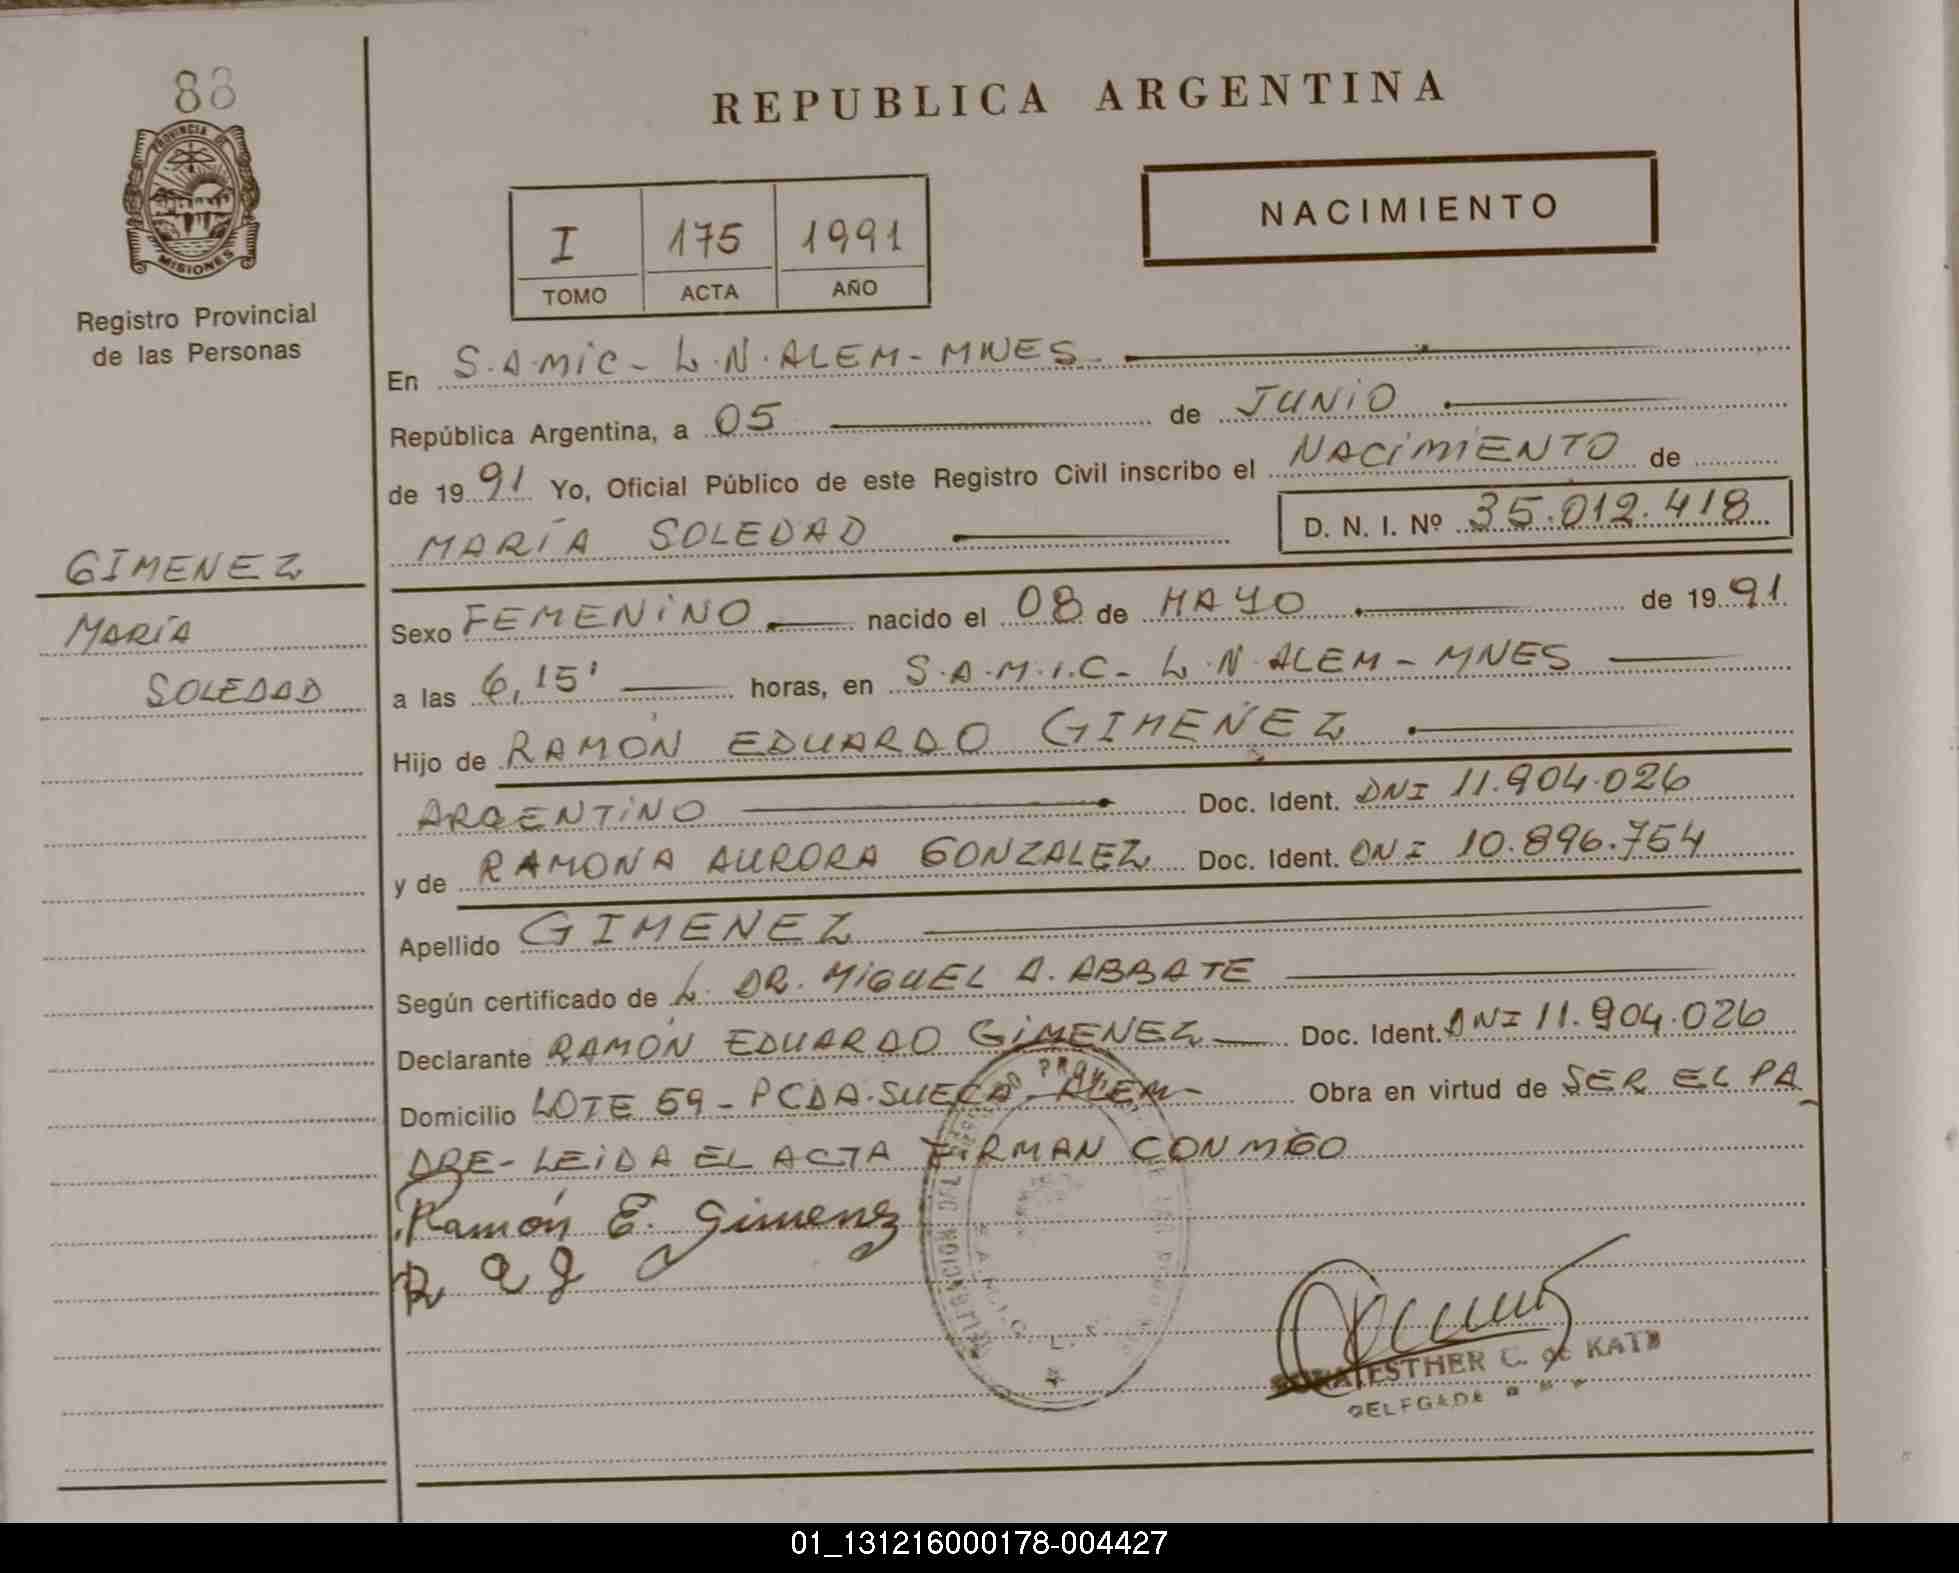 88
PROVINCIA DE
MISIONES
Registro Provincial
de las Personas
GIMENEZ
MARÍA
SOLEDAD
REPUBLICA ARGENTINA
I 175 1991
TOMO ACTA AÑO
NACIMIENTO
En S.A.MIC- L.N.ALEM-MNES
República Argentina, a 05 de JUNIO
de 1991 Yo, Oficial Público de este Registro Civil inscribo el NACIMIENTO de
MARÍA SOLEDAD D. N. I. Nº 35.012.418
Sexo FEMENINO nacido el 08 de MAYO de 1991
a las 6,15' horas, en S.A.M.I.C- L.N.ALEM-MNES
Hijo de RAMÓN EDUARDO GIMENEZ
ARGENTINO Doc. Ident. DNI 11.904.026
y de RAMONA AURORA GONZALEZ Doc. Ident. DNI 10.896.754
Apellido GIMENEZ
Según certificado de L. DR. MIGUEL A. ABBATE
Declarante RAMÓN EDUARDO GIMENEZ Doc. Ident. DNI 11.904.026
Domicilio LOTE 59-PCDA.SUECA-ALEM- Obra en virtud de SER EL PA
DRE-LEIDA EL ACTA FIRMAN CONMGO
Ramón E. Gimenez
R a g
ESTHER C. de KATZ
DELEGADA
01_131216000178-004427